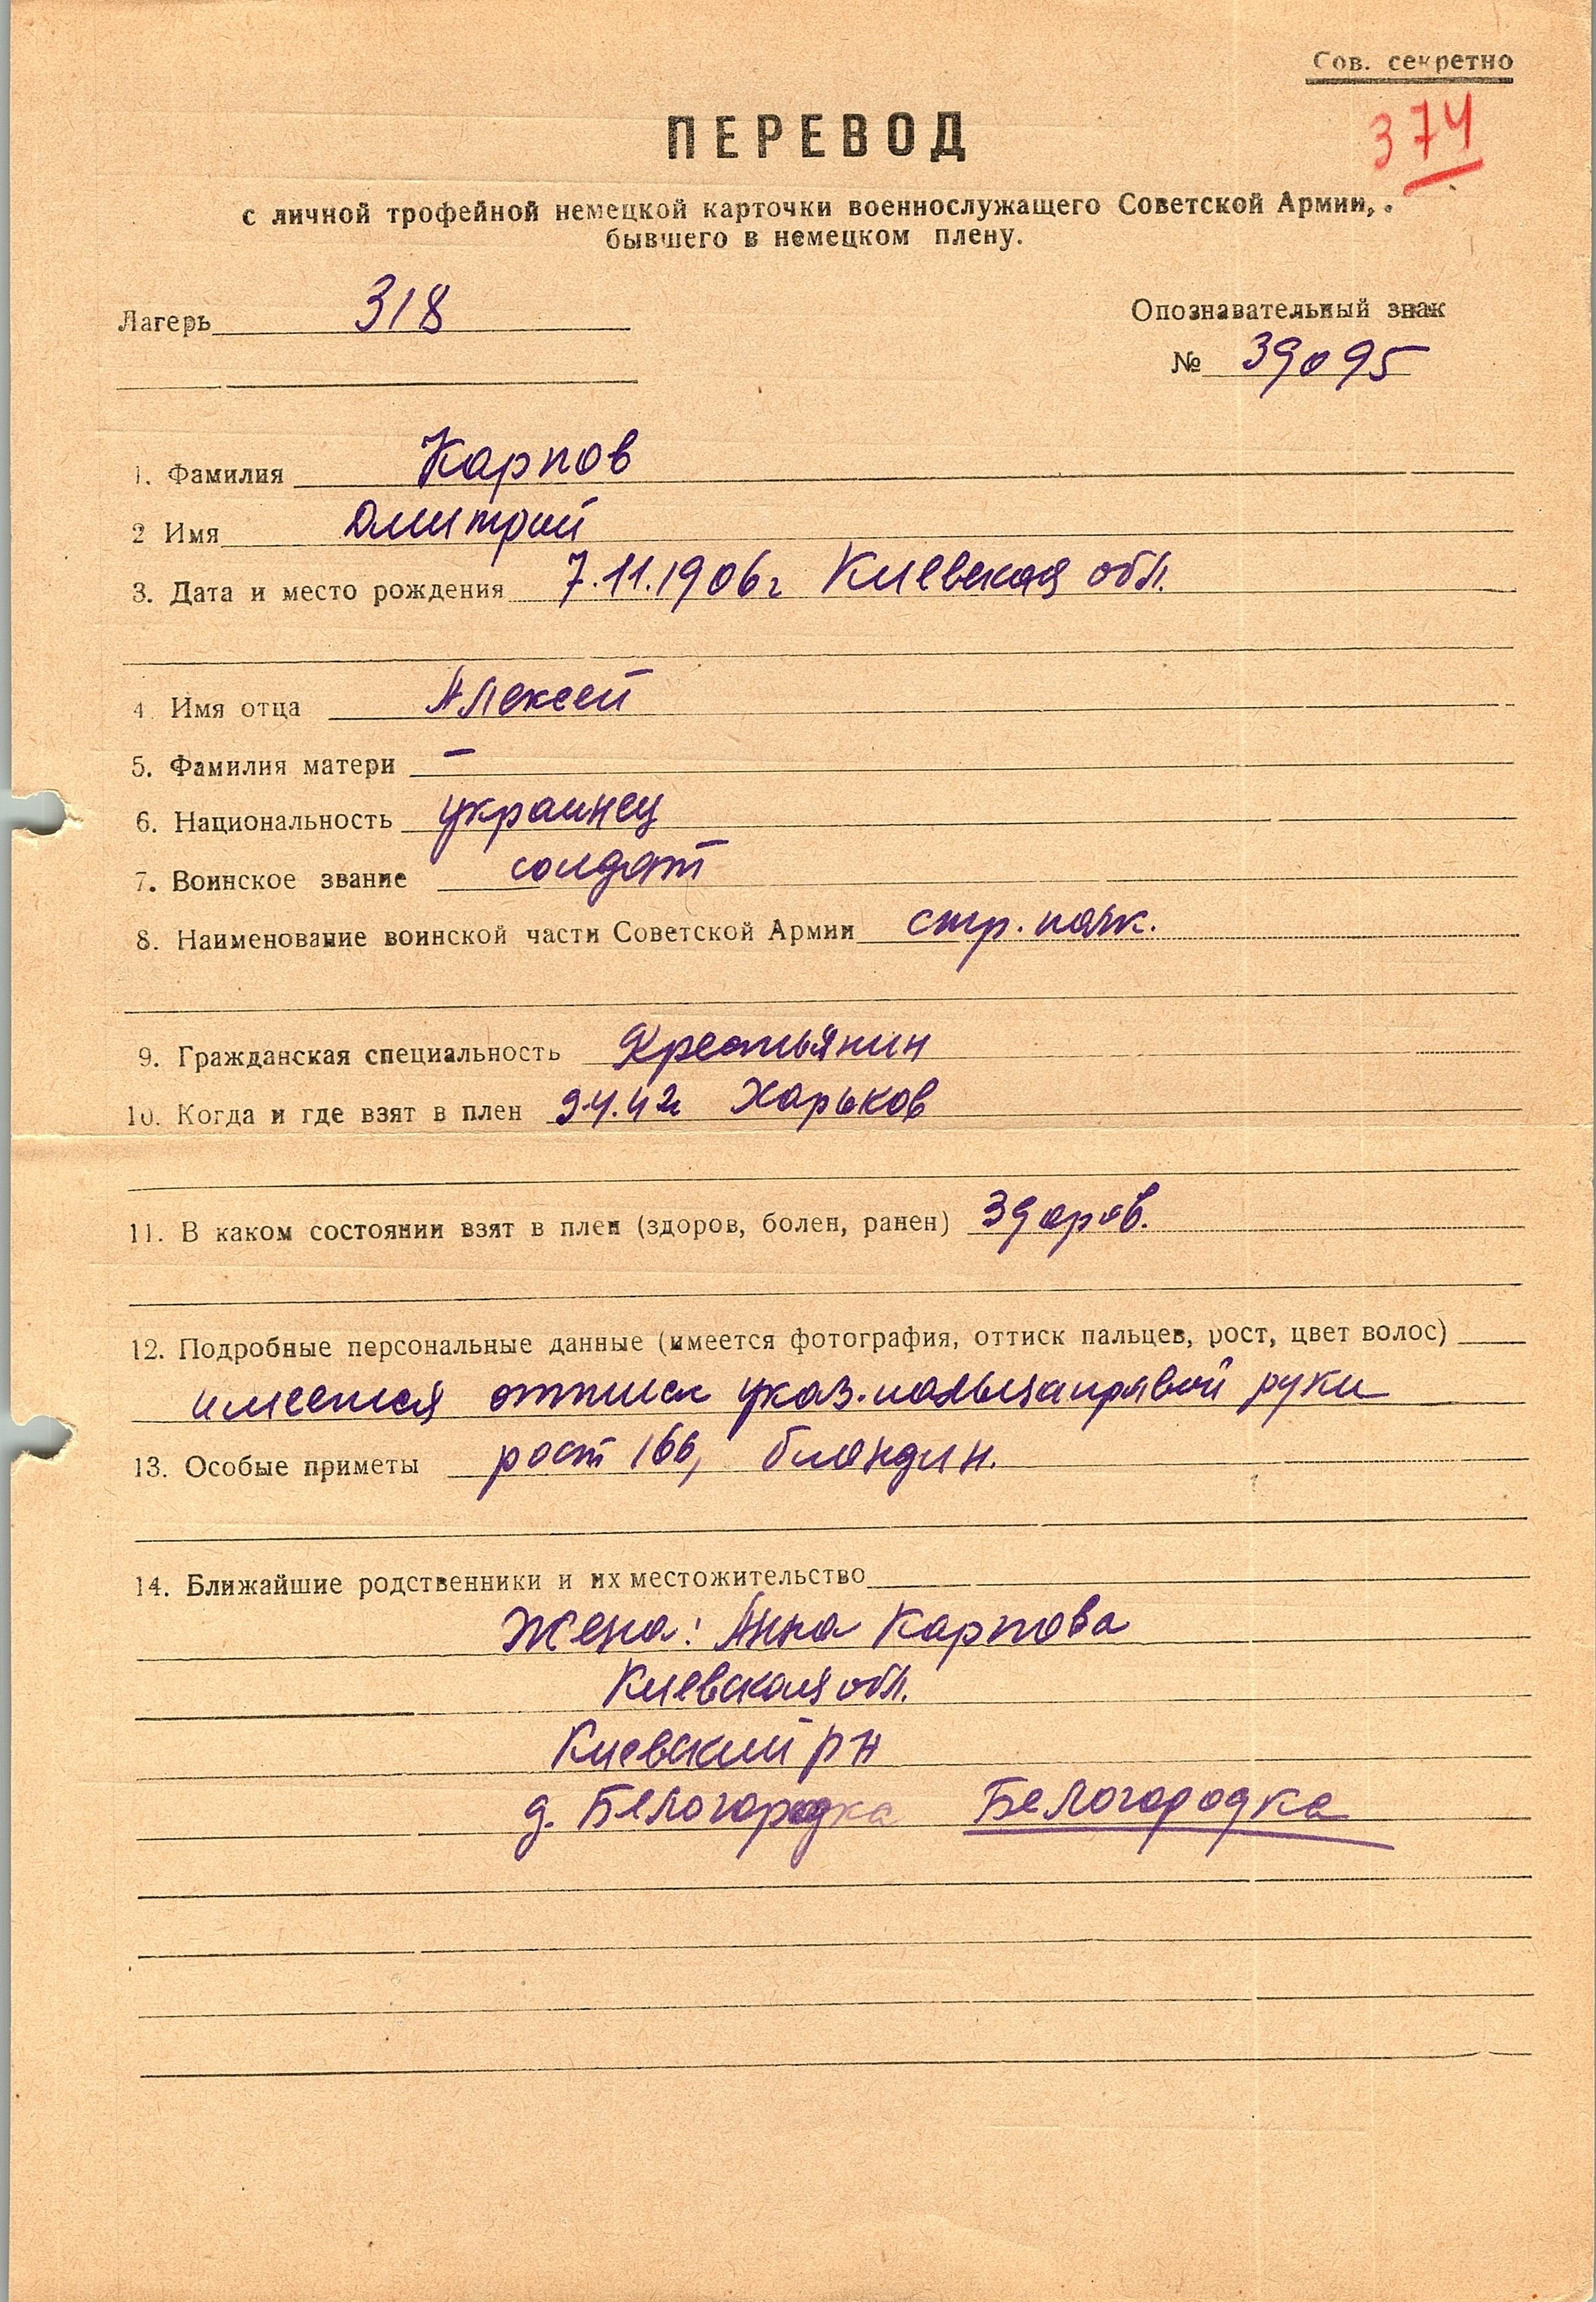 Сов. секретно
374
ПЕРЕВОД
с личной трофейной немецкой карточки военнослужащего Советской Армии,
бывшего в немецком плену.
Лагерь 318
Опознавательный знак
№ 39095
1. Фамилия Карпов
2 Имя Дмитрий
3. Дата и место рождения 7.11.1906г Киевская обл.
4 Имя отца Алексей
5. Фамилия матери —
6. Национальность украинец
7. Воинское звание солдат
8. Наименование воинской части Советской Армии стр. полк.
9. Гражданская специальность Крестьянин
10. Когда и где взят в плен 9.4.42г Харьков
11. В каком состоянии взят в плен (здоров, болен, ранен) здоров.
12. Подробные персональные данные (имеется фотография, оттиск пальцев, рост, цвет волос)
имеется оттиск указ. пальца правой руки
13. Особые приметы рост 166, блондин.
14. Ближайшие родственники и их местожительство
Жена: Анна Карпова
Киевская обл.
Киевский р н
д. Белогородка Белогородка